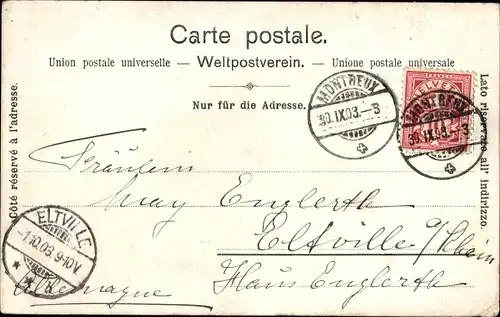 Carte postale.
Union postale universelle — Weltpostverein. — Unione postale universale
Nur für die Adresse.
Côté réservé à l'adresse.
Lato riservato all' indirizzo.
MONTREUX
30.IX.03.-3
MONTREUX
30.IX.03.-3
HELVETIA
10
Fräulein
May Englerth
Eltville a/Rhein
Haus Englerth
Allemagne
ELTVILLE
-1.10.03.9-10V